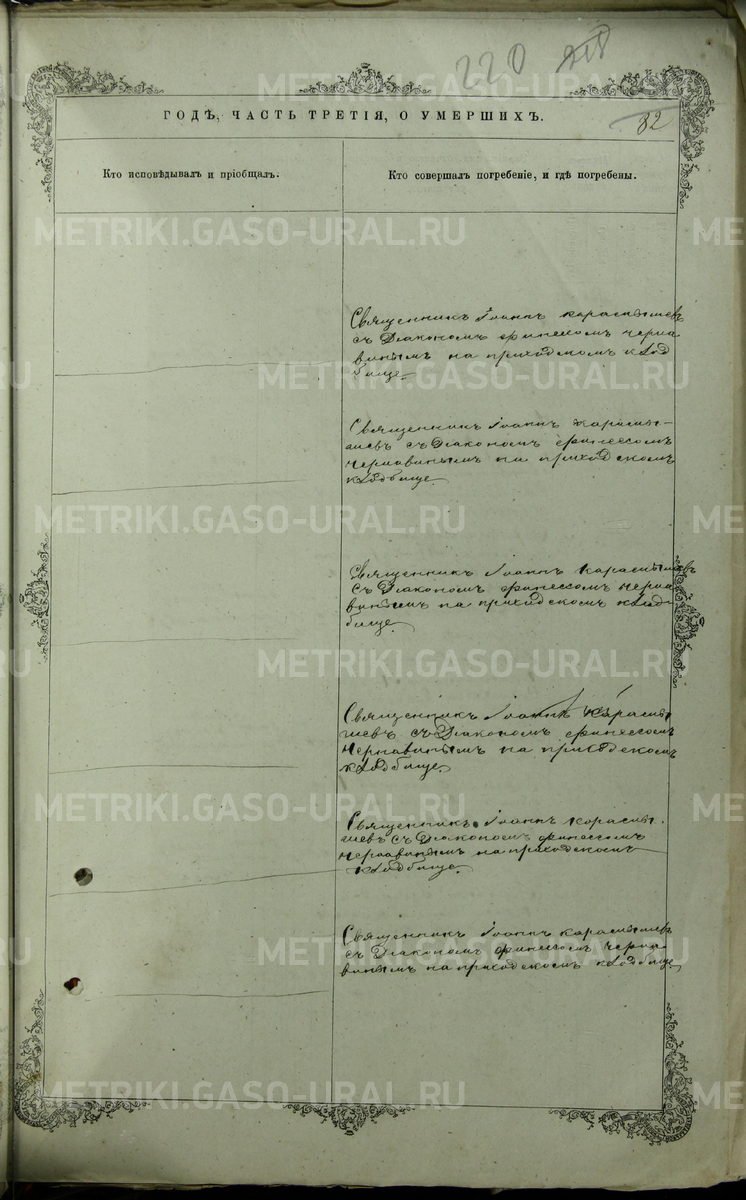 220
ГОДѢ, ЧАСТЬ ТРЕТІЯ, О УМЕРШИХЪ.
82
Кто исповѣдывалъ и пріобщалъ.
Кто совершалъ погребеніе, и гдѣ погребены.
Священникъ Іоаннъ Карасмышевъ
съ Діакономъ Финеесомъ Черна
винымъ на приходскомъ клад
бище.
Священникъ Іоаннъ Карасмы-
шевъ съ Діакономъ Финеесомъ
Чернавинымъ на приходскомъ
кладбище.
Священникъ Іоаннъ Карасмышевъ
съ Діакономъ Финеесомъ Черна
винымъ на приходскомъ клад
бище.
Священникъ Іоаннъ Карасмы
шевъ съ Діакономъ Финеесомъ
Чернавинымъ на приходскомъ
кладбище.
Священникъ Іоаннъ Карасмы.
шевъ съ Діакономъ Финеесомъ
Чернавинымъ на приходскомъ
кладбище.
Священникъ Іоаннъ Карасмышевъ
съ Діакономъ Финеесомъ Черна
винымъ на приходскомъ кладбище
METRIKI.GASO-URAL.RU